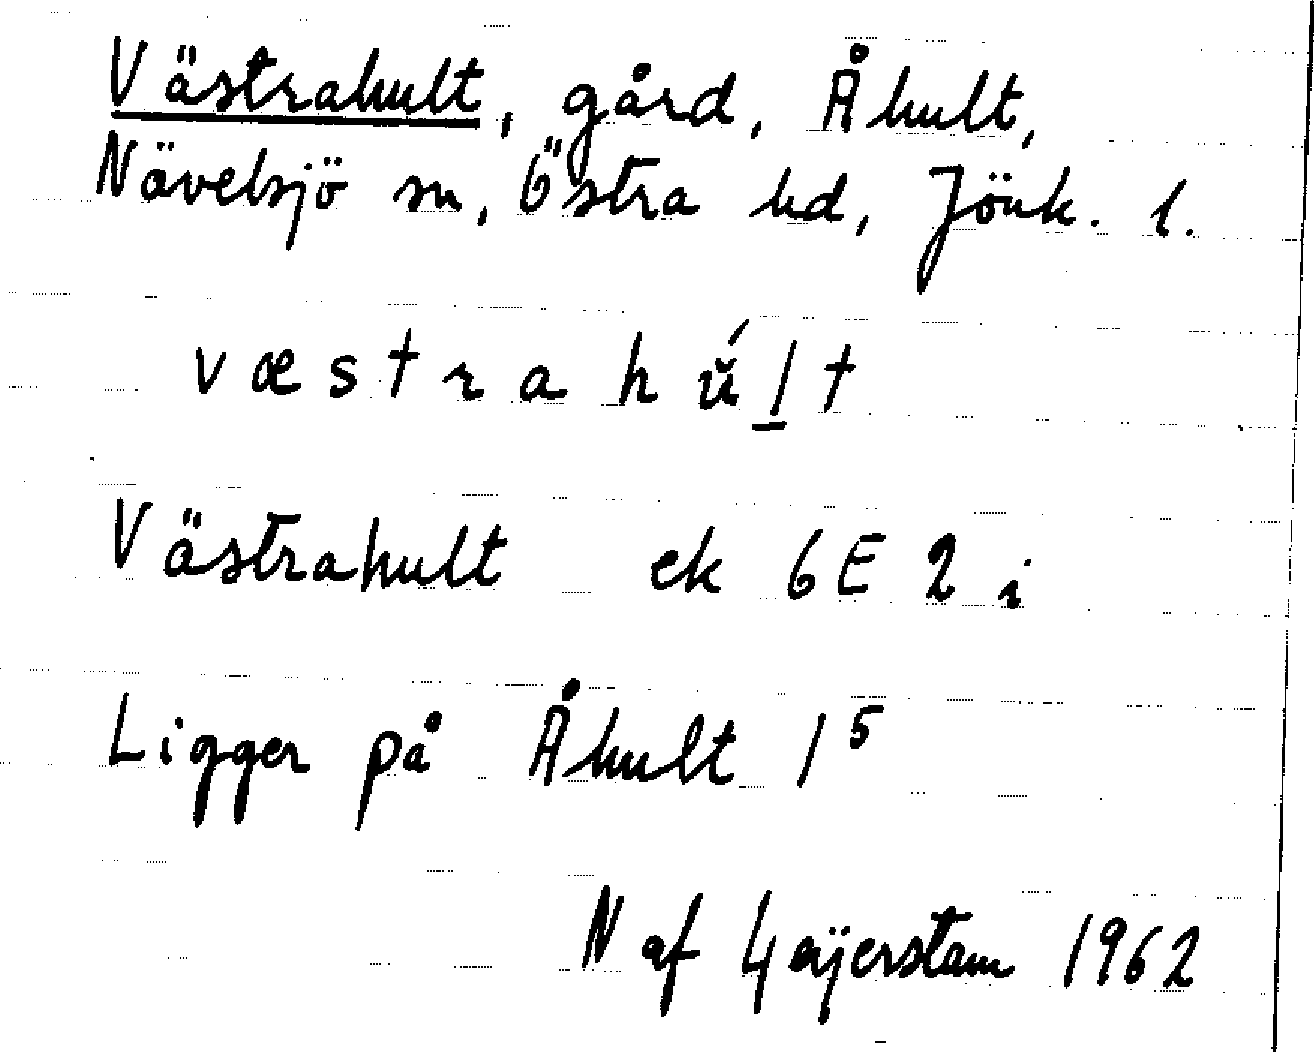 Västrahult, gård, Åhult,
Nävelsjö sn, Östra hd, Jönk. l.
væstrahú̆l̲t
Västrahult ek 6E 2 i
Ligger på Åhult 1⁵
N af Geijerstam 1962